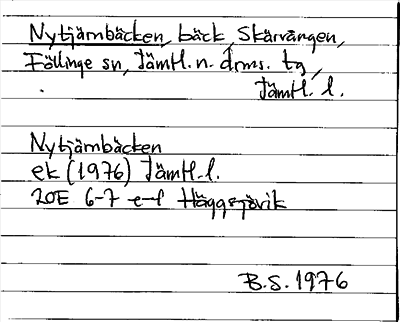 Nytjärnbäcken, bäck, Skärvången,
Föllinge sn, Jämtl. n. dms. tg,
Jämtl. l.
Nytjärnbäcken
ek (1976) Jämtl. l.
20E 6-7 e-f Häggsjövik
B.S. 1976